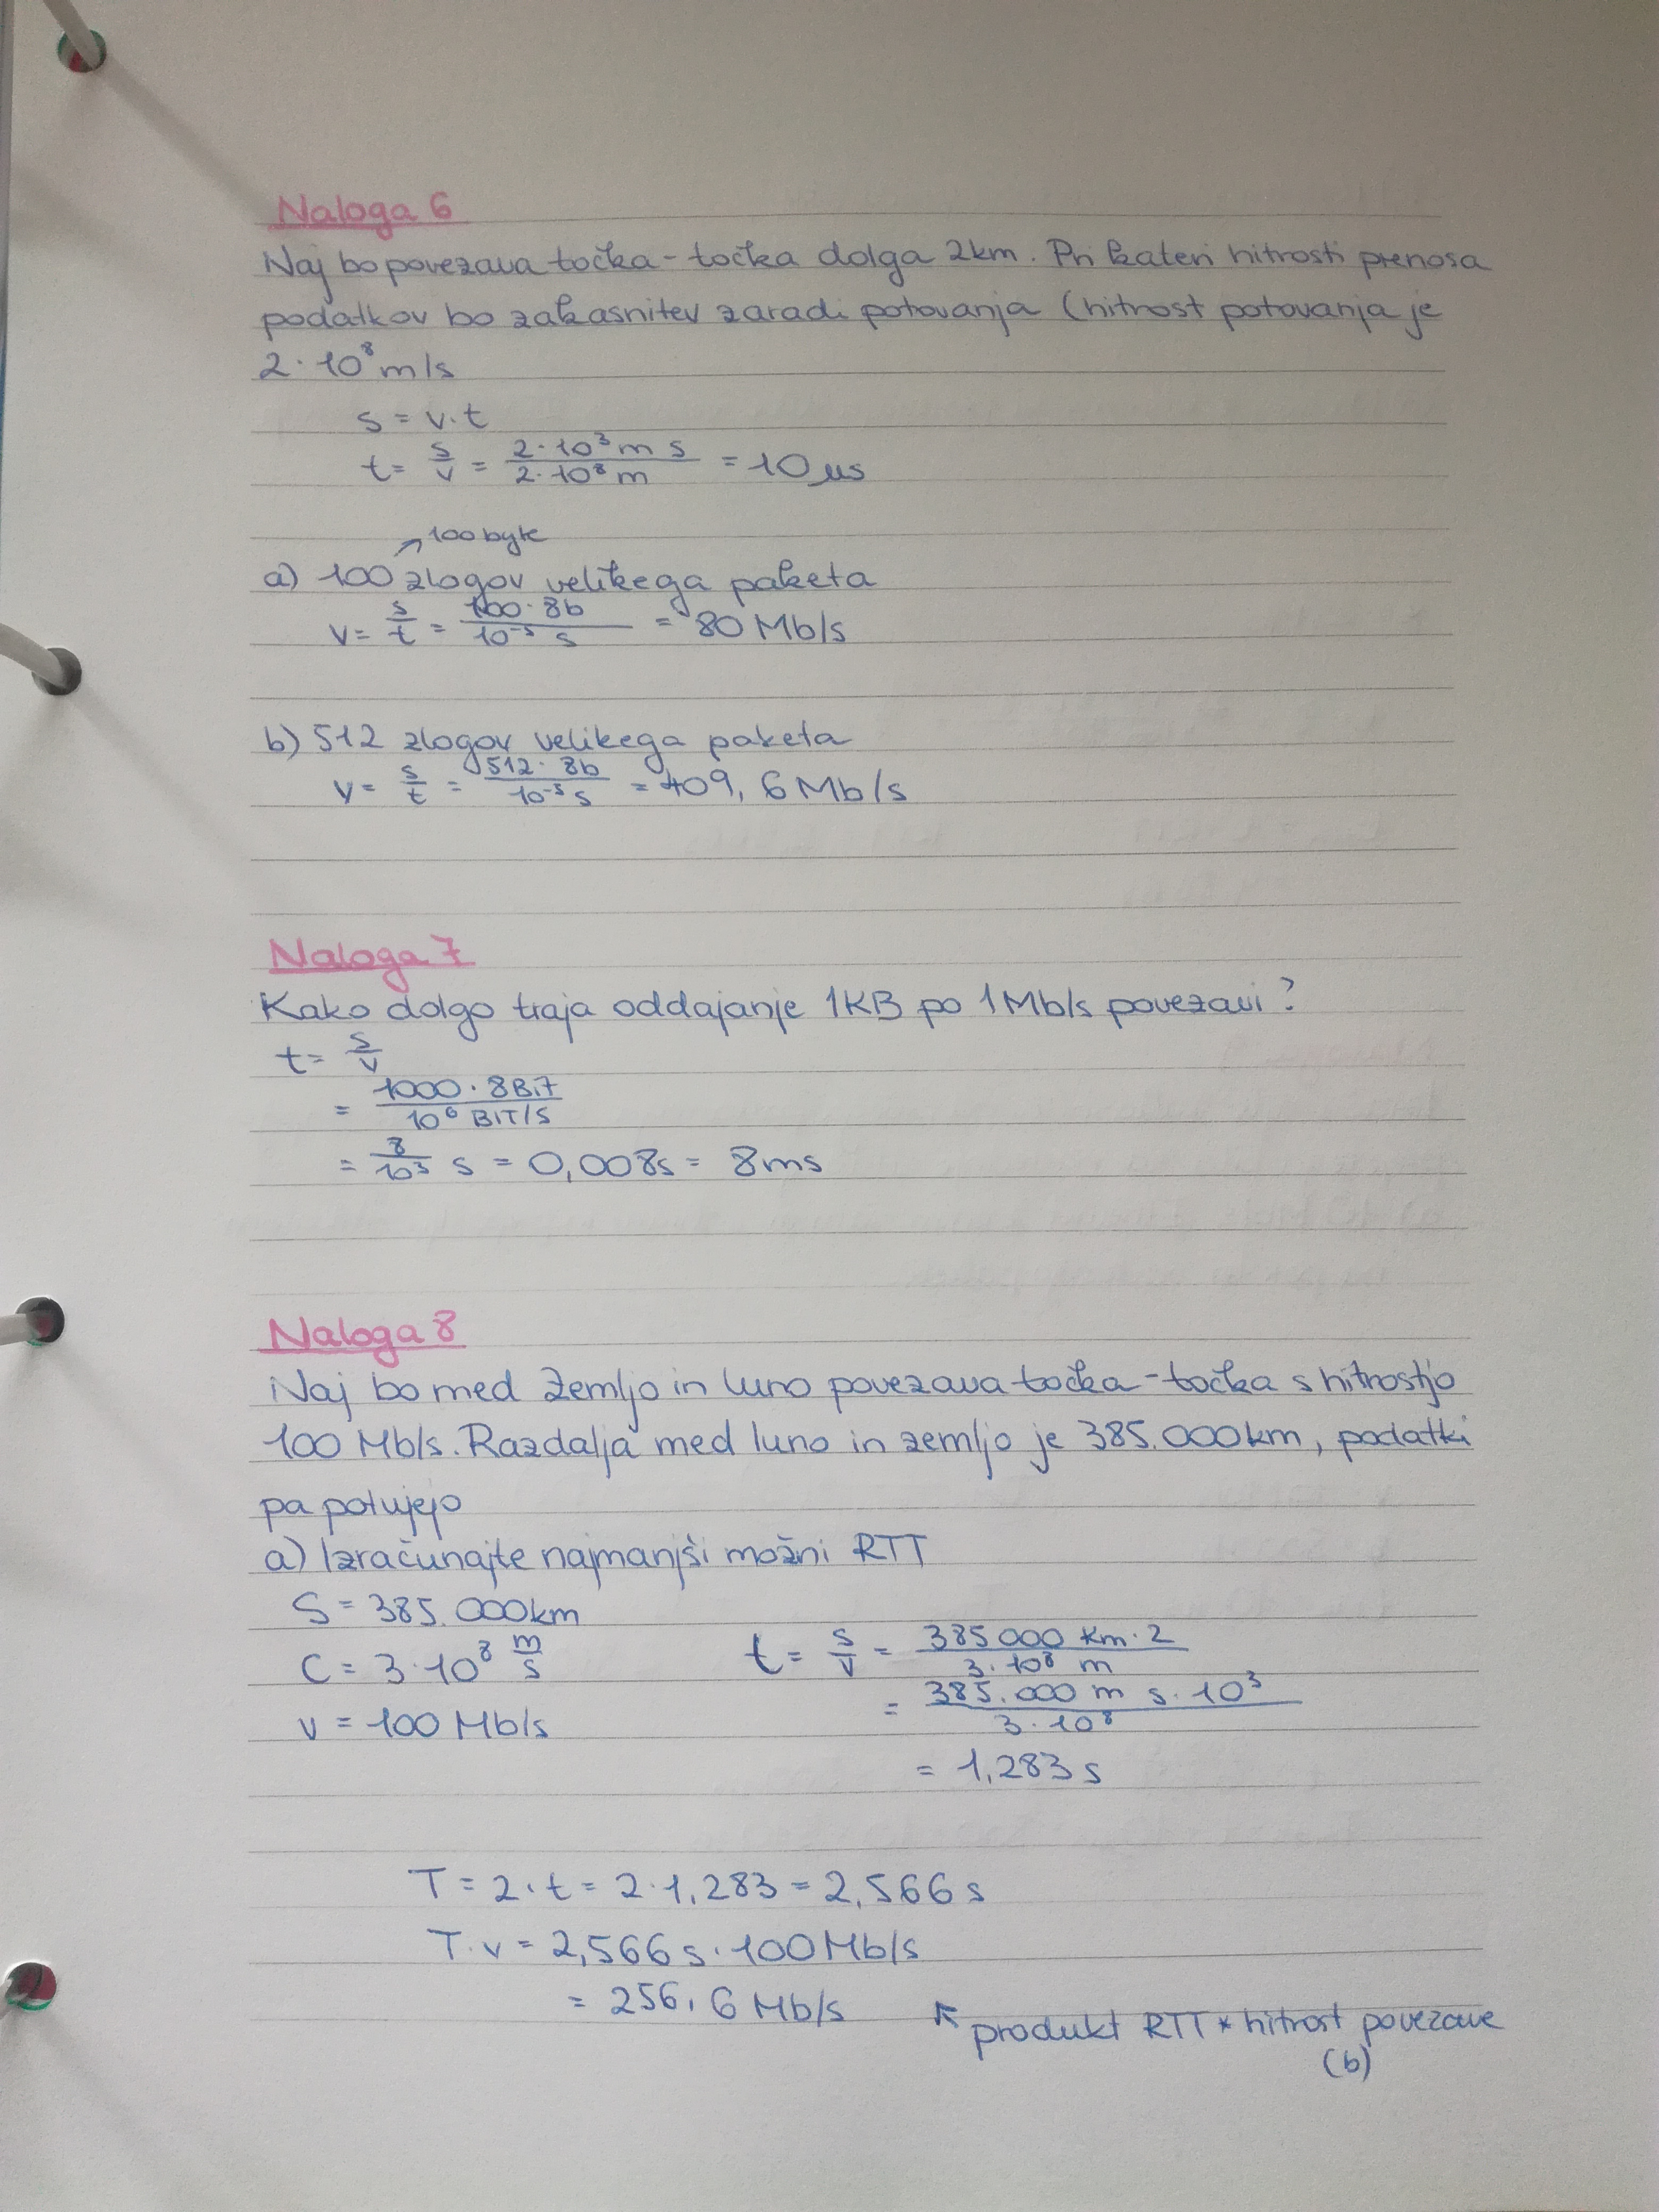 Naloga 6
Naj bo povezava točka - točka dolga 2km. Pri kateri hitrosti prenosa
podatkov bo zakasnitev zaradi potovanja (hitrost potovanja je
2 · 10⁸ m/s
s = v · t
t = s/v = 2 · 10³ m s / 2 · 10⁸ m = 10 µs
↗ 100 byte
a) 100 zlogov velikega paketa
v = s/t = 100 · 8b / 10⁻⁵ s = 80 Mb/s
b) 512 zlogov velikega paketa
v = s/t = 512 · 8b / 10⁻⁵ s = 409,6 Mb/s
Naloga 7
Kako dolgo traja oddajanje 1KB po 1Mb/s povezavi?
t = s/v
= 1000 · 8 BIT / 10⁶ BIT/S
= 8/10³ s = 0,008s = 8ms
Naloga 8
Naj bo med Zemljo in luno povezava točka - točka s hitrostjo
100 Mb/s. Razdalja med luno in zemljo je 385.000km, podatki
pa potujejo
a) Izračunajte najmanjši možni RTT
S = 385.000km
C = 3 · 10⁸ m/s
v = 100 Mb/s
t = s/v = 385 000 km · 2 / 3 · 10⁸ m
= 385.000 m s · 10³ / 3 · 10⁸
= 1,283 s
T = 2 · t = 2 · 1,283 = 2,566 s
T · v = 2,566 s · 100 Mb/s
= 256,6 Mb/s
↖ produkt RTT * hitrost povezave
(b)